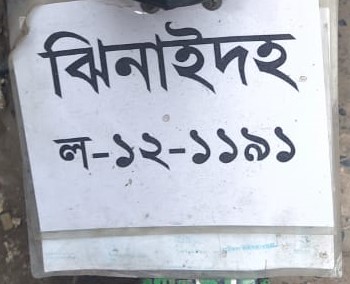 ঝিনাইদহ
ল-১২-১১৯১